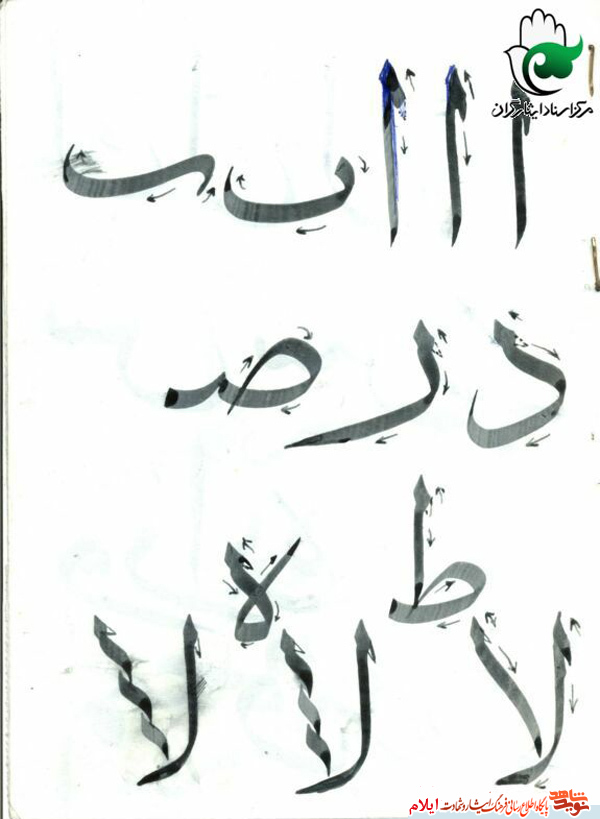 مرکز اسناد ایثارگران
ا ا ا ٮ ٮ
د ر صـ
ط
لا لا لا
نوید شاهد پایگاه اطلاع رسانی فرهنگ ایثار و شهادت ایلام